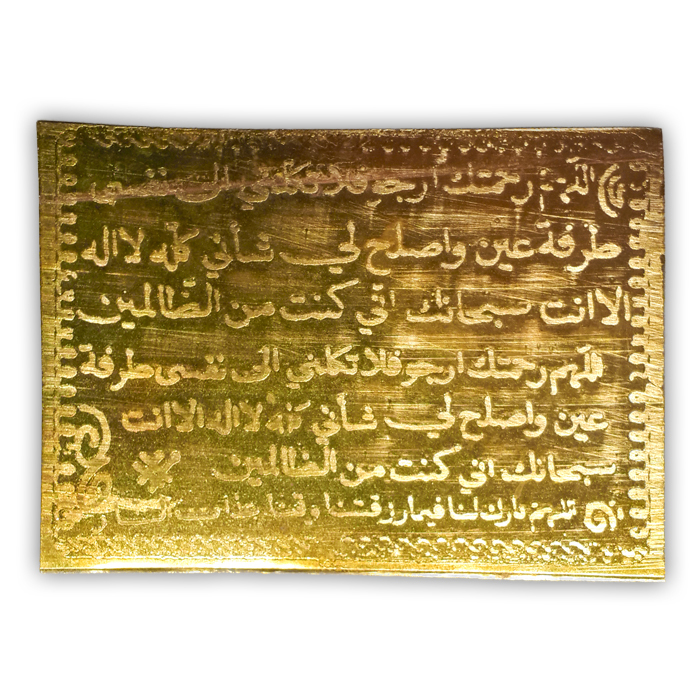 اللهم رحمتك ارجو فلا تكلني الى نفسي
طرفة عين واصلح لي شأني كله لا اله
الا انت سبحانك اني كنت من الظالمين
فلهم رحمتك ارجو فلا تكلني الى نفسي طرفة
عين واصلح لي شأني كله لا اله الا انت
سبحانك اني كنت من الظالمين
بارك لنا فيما رزقتنا وقنا عذاب النار